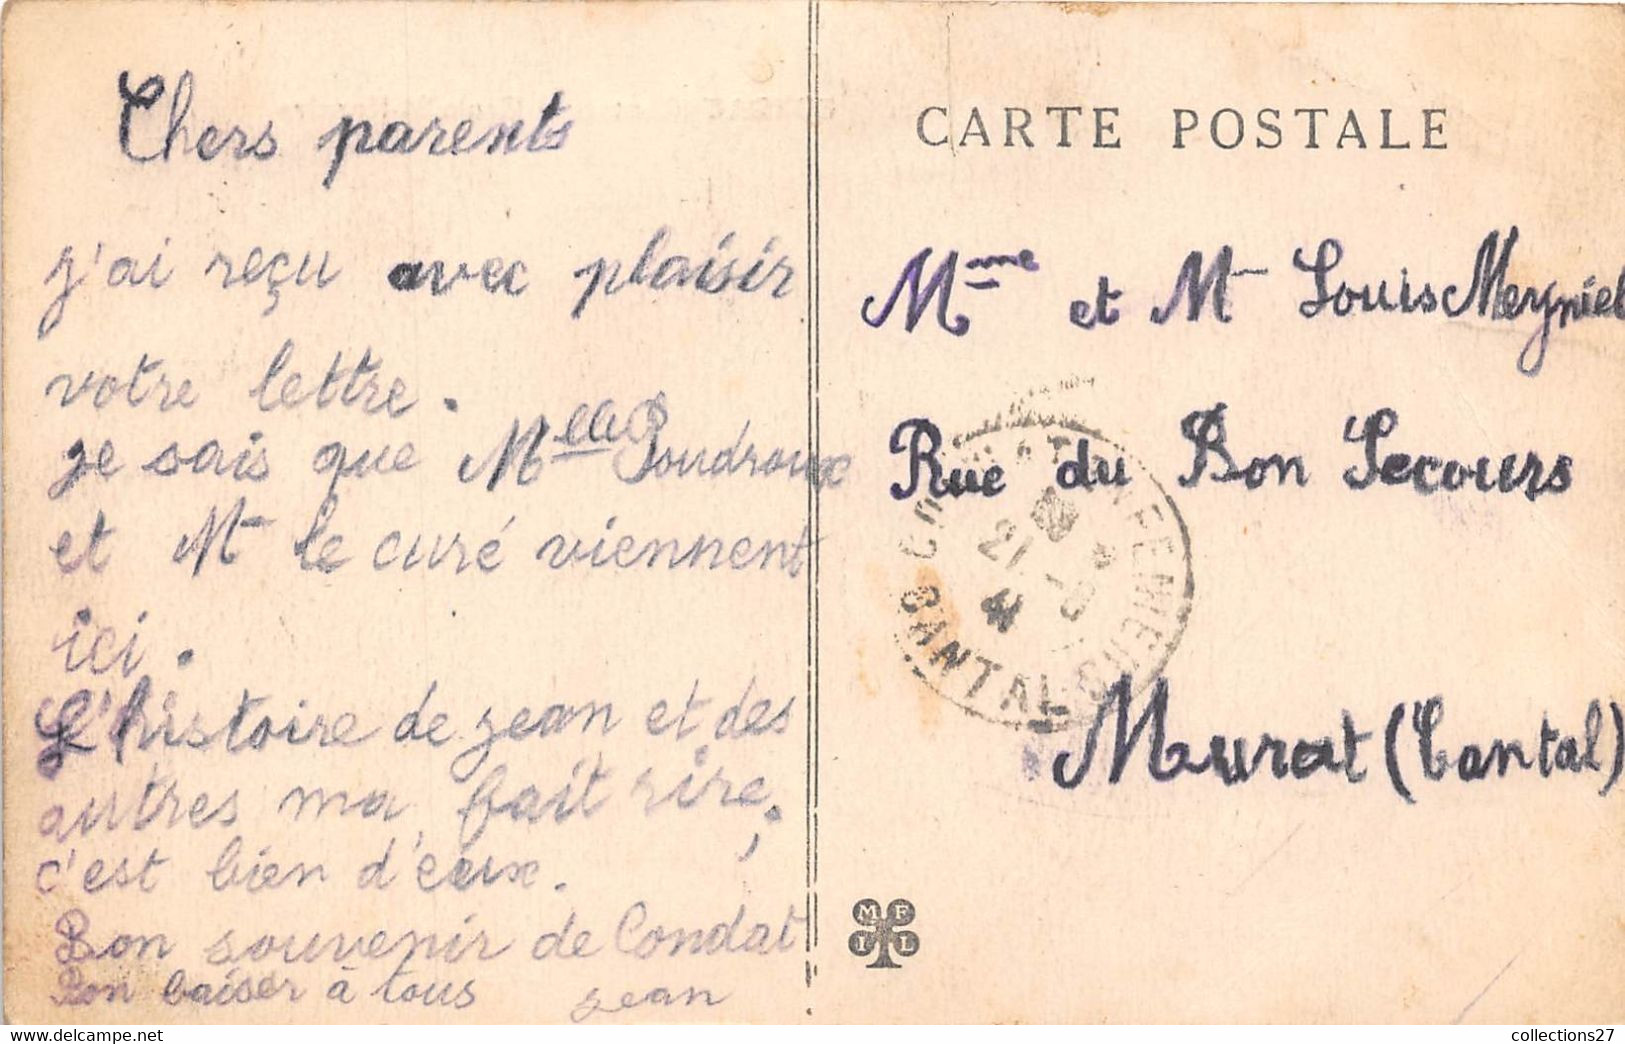 Chers parents
j'ai reçu avec plaisir
votre lettre.
je sais que Melle Poudroux
et Mr le curé viennent
ici.
L'histoire de jean et des
autres ma fait rire,
c'est bien d'eux.
Bon souvenir de Condat
Bon baiser à tous jean
CARTE POSTALE
Mme et Mr Louis Meyniel
Rue du Bon Secours
Murat (Cantal)
CONDAT EN FENIERS
21
41
CANTAL
M F
I L
collections27